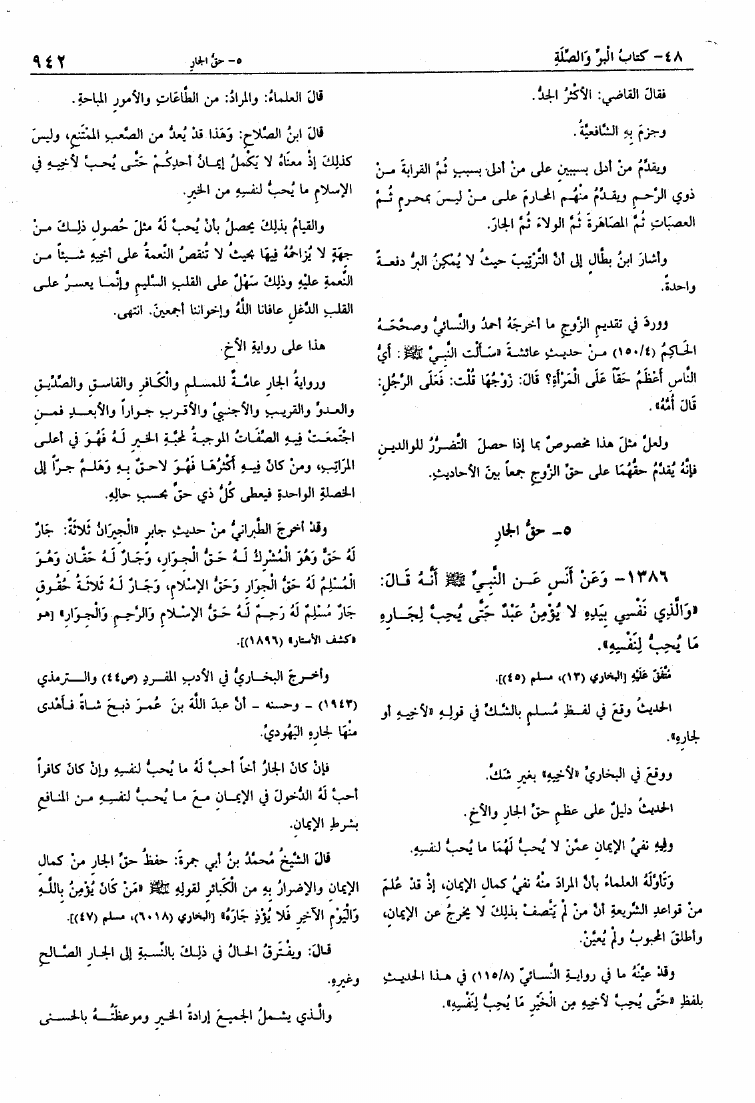 ٤٨- كتابُ الْبرِّ والصِّلَةِ
٥- حقُّ الجارِ
٩٤٢
فقالَ القاضي: الأكثرُ الجدُّ.
وجزمَ بهِ الشَّافعيَّةُ.
ويقدَّمُ منْ أدلى بسببينِ على منْ أدلى بسببٍ ثمَّ القرابةَ منْ
ذوي الرَّحمِ ويقدَّمُ منْهم المحارمَ على منْ ليسَ بمحرمٍ ثمَّ
العصباتِ ثمَّ المصَاهرةَ ثمَّ الولاءَ ثمَّ الجارَ.
وأشارَ ابنُ بطالٍ إلى أنَّ التَّرتيبَ حيثُ لا يُمكنُ البرُّ دفعةً
واحدةً.
ووردَ في تقديمِ الزَّوجِ ما أخرجَهُ أحمدُ والنَّسائيُّ وصحَّحَهُ
الحَاكمُ (١٥٠/٤) منْ حديثِ عائشةَ «سَألت النَّبيَّ ﷺ: أيُّ
النَّاسِ أعْظمُ حقاً عَلَى الْمرْأةِ؟ قالَ: زَوْجُها قُلت: فَعَلَى الرَّجُلِ:
قالَ أُمُّهُ».
ولعلَّ مثلَ هذا مخصوصٌ بما إذا حصلَ التَّضرُّرُ للوالدينِ
فإنَّهُ يُقدَّمُ حقُّهُمَا على حقِّ الزَّوجِ جمعاً بينَ الأحاديثِ.
٥- حقُّ الجارِ
١٣٨٦- وَعَنْ أَنَسٍ عَنِ النَّبِيِّ ﷺ أَنَّهُ قَالَ:
«وَالَّذِي نَفْسِي بِيَدِهِ لا يُؤْمِنُ عَبْدٌ حَتَّى يُحِبَّ لِجَارِهِ
مَا يُحِبُّ لِنَفْسِهِ».
مُتَّفَقٌ عَلَيْهِ [البخاري (١٣)، مسلم (٤٥)].
الحَديثُ وقعَ في لفظِ مُسلمٍ بالشَّكِّ في قولِهِ «لأخِيهِ أو
لجارِهِ».
ووقعَ في البخاريِّ «لأخيهِ» بغيرِ شكٍّ.
الحديثُ دليلٌ على عظمِ حقِّ الجارِ والأخِ.
وفِيهِ نفيُ الإيمانِ عمَّنْ لا يُحبُّ لَهُمَا ما يُحبُّ لنفسِهِ.
وتَأوَّلَهُ العلماءُ بأنَّ المرادَ منْهُ نفيُ كمالِ الإيمانِ، إذ قدْ علمَ
منْ قواعدِ الشَّريعةِ أنَّ منْ لمْ يتَّصفْ بذلكَ لا يخرجُ عنِ الإيمانِ،
وأطلقَ المحبوبُ ولمْ يُعيَّنْ.
وقدْ عيَّنَهُ ما في روايةِ النَّسائيِّ (١١٥/٨) في هذا الحديثِ
بلفظِ «حَتَّى يُحِبَّ لأخيهِ مِن الْخَيْرِ مَا يُحِبُّ لِنَفْسِهِ».
قالَ العلماءُ: والمرادُ: من الطَّاعَاتِ والأمورِ المباحةِ.
قالَ ابنُ الصَّلاحِ: وَهَذا قدْ يُعدُّ من الصَّعبِ الممْتَنعِ، وليسَ
كذلكَ إذْ معنَاهُ لا يَكْملُ إيمانُ أحدِكُم حَتَّى يُحبَّ لأخِيهِ في
الإسلامِ ما يُحبُّ لنفسِهِ من الخيرِ.
والقيامُ بذلكَ يحصلُ بأنْ يُحبَّ لهُ مثلَ حُصولِ ذلكَ منْ
جهةٍ لا يُزاحمُهُ فيهَا بحيثُ لا تُنقصُ النِّعمةُ على أخيهِ شيئاً من
النِّعمةِ عليهِ وذلكَ سَهْلٌ على القلبِ السَّليمِ وإنَّما يعسرُ على
القلبِ الدَّغلِ عافانا اللَّهُ وإخواننا أجمعينَ. انتهى.
هذا على روايةِ الأخِ.
وروايةُ الجارِ عامَّةٌ للمسلمِ والْكَافرِ والفاسقِ والصِّدِّيقِ
والعدوِّ والقريبِ والأجنبيِّ والأقربِ جواراً والأبعدِ فمنْ
اجْتمَعتْ فيهِ الصِّفاتُ الموجبةُ لمحبَّةِ الخيرِ لهُ فَهُوَ في أعلى
المرَاتبِ، ومنْ كانَ فيهِ أكثرُهَا فَهُوَ لاحقٌ بهِ وَهَلمَّ جرّاً إلى
الخصلةِ الواحدةِ فيعطى كلُّ ذي حقٍّ بحسبِ حالِهِ.
وقدْ أخرجَ الطَّبرانيُّ منْ حديثِ جابرٍ «الْجِيرَانُ ثَلاثَةٌ: جَارٌ
لَهُ حَقٌّ وَهُوَ الْمُشْرِكُ لَهُ حَقُّ الْجِوَارِ، وَجَارٌ لَهُ حَقَّانِ وَهُوَ
الْمُسْلِمُ لَهُ حَقُّ الْجِوَارِ وَحَقُّ الإِسْلامِ، وَجَارٌ لَهُ ثَلاثَةُ حُقُوقٍ
جَارٌ مُسْلِمٌ لَهُ رَحِمٌ لَهُ حَقُّ الإِسْلامِ وَالرَّحِمِ وَالْجِوَارِ» [هو
«كشف الأستار» (١٨٩٦)].
وأخرجَ البخاريُّ في الأدبِ المفردِ (ص٤٤) والترمذي
(١٩٤٣) - وحسنه - أنَّ عبدَ اللَّهِ بنَ عُمرَ ذبحَ شاةً فأهْدى
منْهَا لجارِهِ اليَهُوديِّ.
فإنْ كانَ الجارُ أخاً أحبَّ لَهُ ما يُحبُّ لنفسِهِ وإنْ كانَ كافراً
أحبَّ لهُ الدُّخولَ في الإيمانِ معَ ما يُحبُّ لنفسِهِ من المنافعِ
بشرطِ الإيمانِ.
قالَ الشَّيخُ مُحمَّدُ بنُ أبي جمرةَ: حفظُ حقِّ الجارِ من كمالِ
الإيمانِ والإضرارُ بهِ من الكَبائرِ لقولِهِ ﷺ «مَنْ كَانَ يُؤْمِنُ بِاللَّهِ
وَالْيَوْمِ الآخِرِ فَلا يُؤْذِ جَارَهُ» [البخاري (٦٠١٨)، مسلم (٤٧)].
قالَ: ويفْتَرقُ الحَالُ في ذلكَ بالنِّسبةِ إلى الجارِ الصَّالحِ
وغيرِهِ.
والَّذي يشملُ الجميعَ إرادةُ الخيرِ وموعظَتُهُ بالحسنى